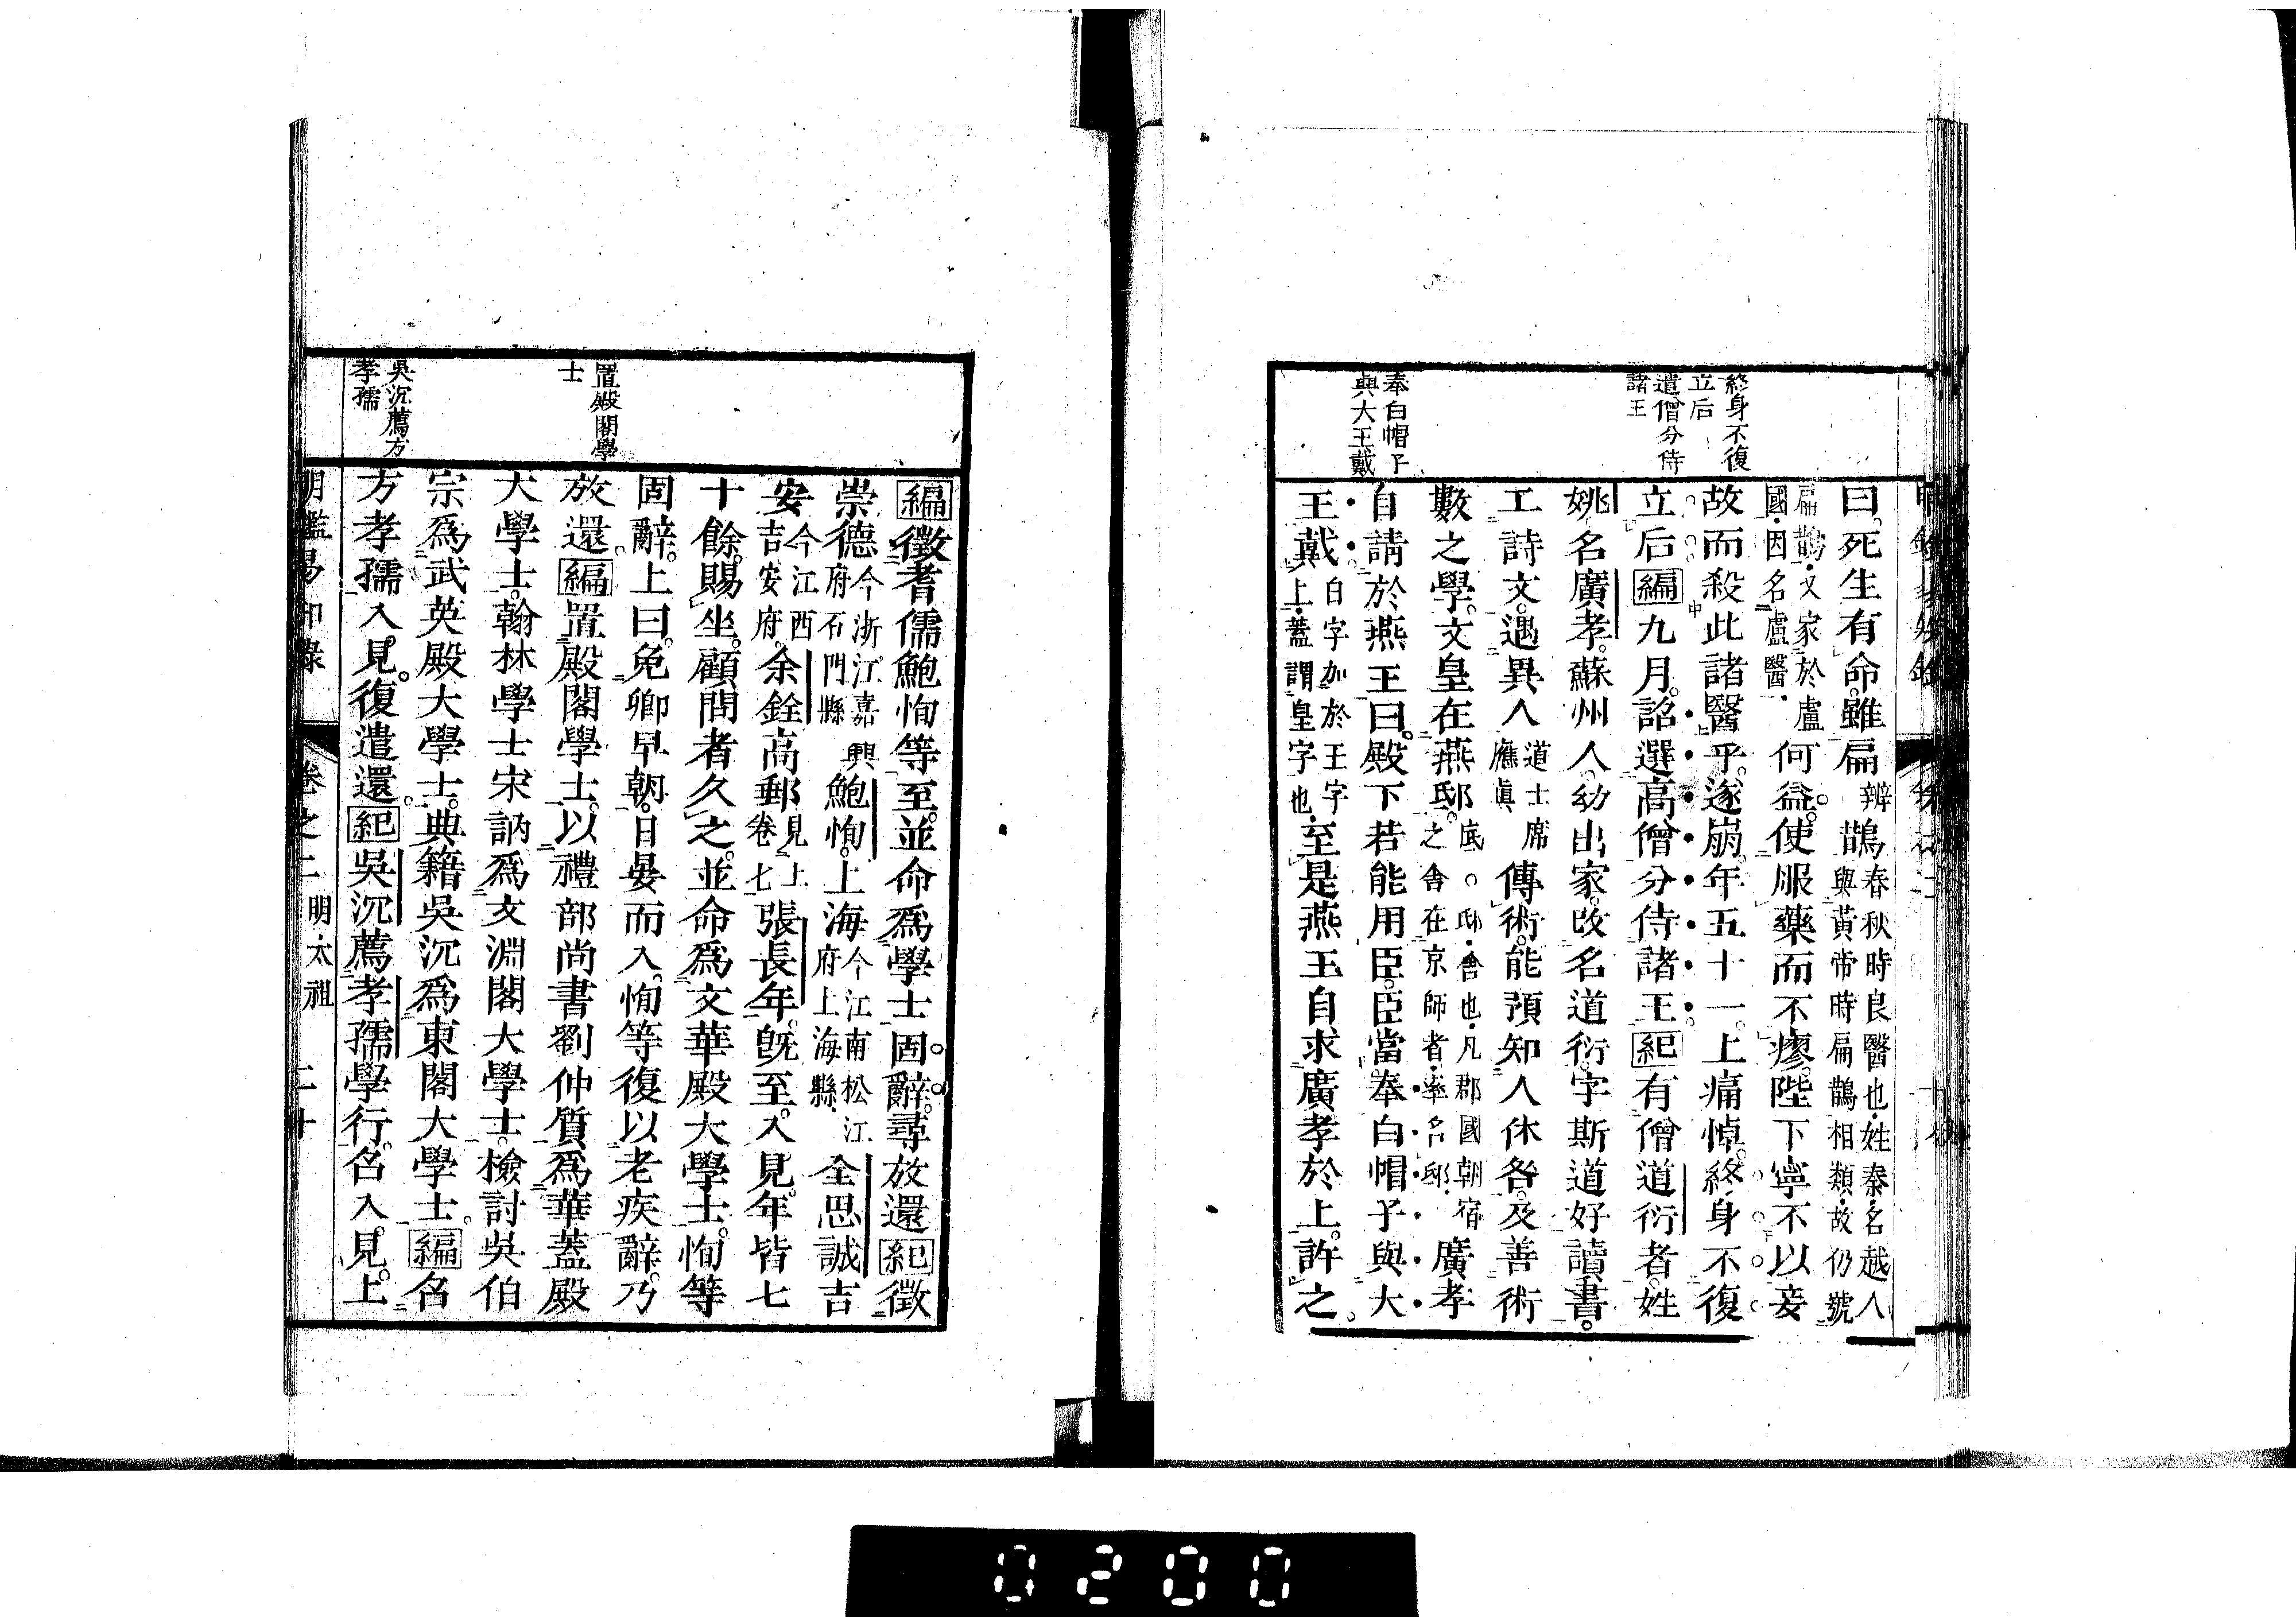 終身不復
立后
遣僧分侍
諸王
奉白帽子
與大王戴
曰。死生有命。雖扁辨鵲春秋時良醫也。姓秦。名越人
與黃帝時扁鵲相類。故仍號
扁鵲。又家於盧
國。因名盧醫。何益。使服藥而不瘳。陛下寧不以妾
故而殺此諸醫乎。遂崩。年五十一。上痛悼。終身不復
立后編九月。詔選高僧分侍諸王紀有僧道衍者。姓
姚名廣孝。蘇州人。幼出家。改名道衍。字斯道好讀書。
工詩文。遇異人道士席
應眞傳術。能預知人休咎。及善術
數之學。文皇在燕邸。底。邸。舍也。凡郡國朝宿
之舍在京師者。率名邸。廣孝
自請於燕王曰。殿下若能用臣。臣當奉白帽子與大
王戴白字加於王字
上。蓋謂皇字也。至是燕王自求廣孝於上。許之。
置殿閣學
士
吳沉薦方
孝孺
編徵耆儒鮑恂等至。並命爲學士固辭。尋放還紀徵
崇德今浙江嘉興
府石門縣鮑恂。上海今江南松江
府上海縣。全思誠吉
安今江西
吉安府。余銓高郵見上
卷七張長年。旣至。入見。年皆七
十餘。賜坐。顧問者久之。並命爲文華殿大學士。恂等
固辭。上曰。免卿早朝。日晏而入。恂等復以老疾辭。乃
放還編置殿閣學士。以禮部尚書劉仲質爲華蓋殿
大學士。翰林學士宋訥爲文淵閣大學士。檢討吳伯
宗爲武英殿大學士。典籍吳沉爲東閣大學士。編名
方孝孺入見。復遣還紀吳沉薦孝孺學行。召入見。上
明鑑易知錄 卷之二 明太祖 二十